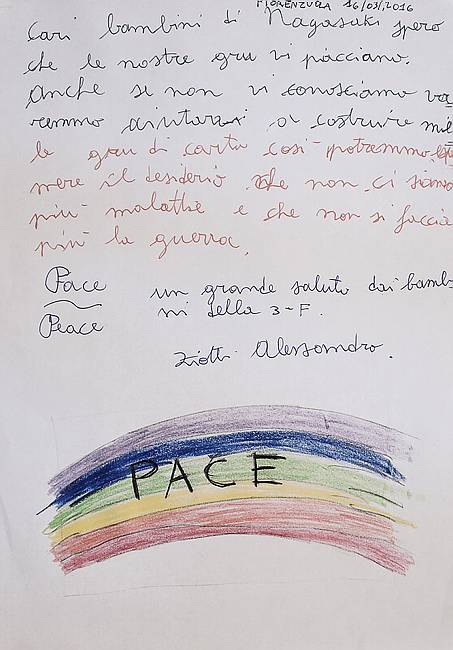 16/03/2016
Cari bambini di Nagasaki spero
che le nostre gru vi piacciano.
Anche se non vi conosciamo vo
remmo aiutarvi a costruire mil
le gru di carta così potremmo
mere il desiderio che non ci siano
più malattie e che non si faccia
più la guerra.
Pace
Peace
un grande saluto dai bambi
ni della 3-F.
Alessandro.
PACE